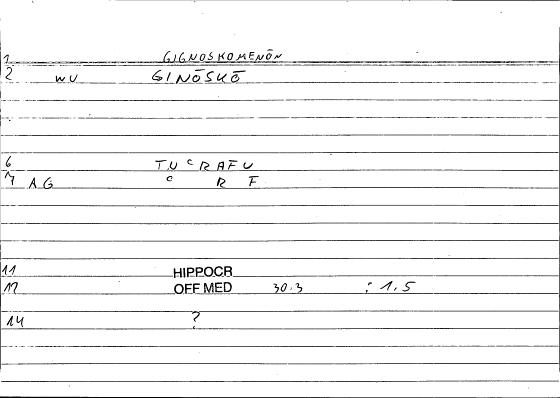 1 GIGNOSKOMENŌN
2 WU GINŌSKŌ
6 TNCRAFU
7 AG C R F
11 HIPPOCR
12 OFF MED 30.3 : 1.5
14 ?